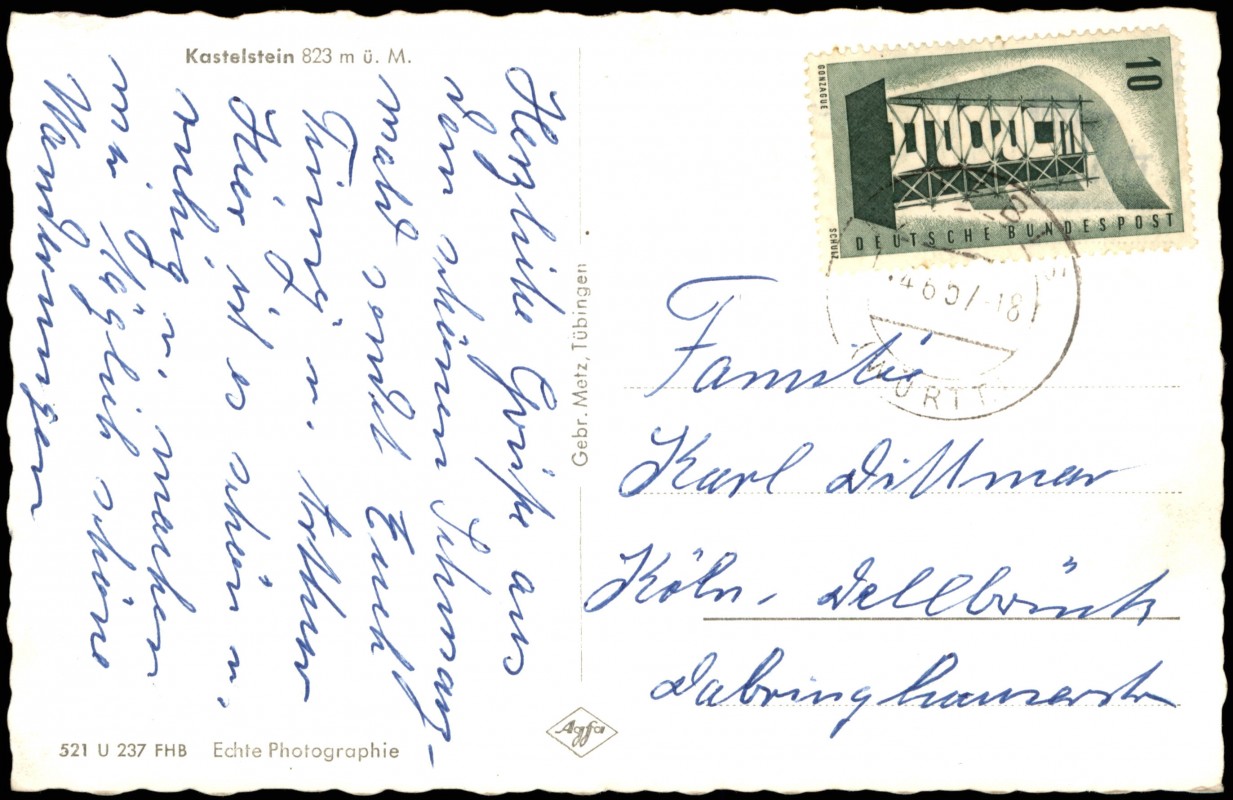 Kastelstein 823 m ü. M.
Herzliche Grüße aus
dem schönen Schwarz-
wald sendet Euch
u. Arthur
Hier ist es schön u.
ruhig u. machen
wir täglich schöne
Wanderungen
Gebr. Metz, Tübingen
521 U 237 FHB Echte Photographie
Agfa
10
GONZAGUE
SCHULZ
DEUTSCHE BUNDESPOST
4.6.57.-18
WÜRTT.
Familie
Karl Dittmar
Köln. Dellbrück
Dabringhauserstr